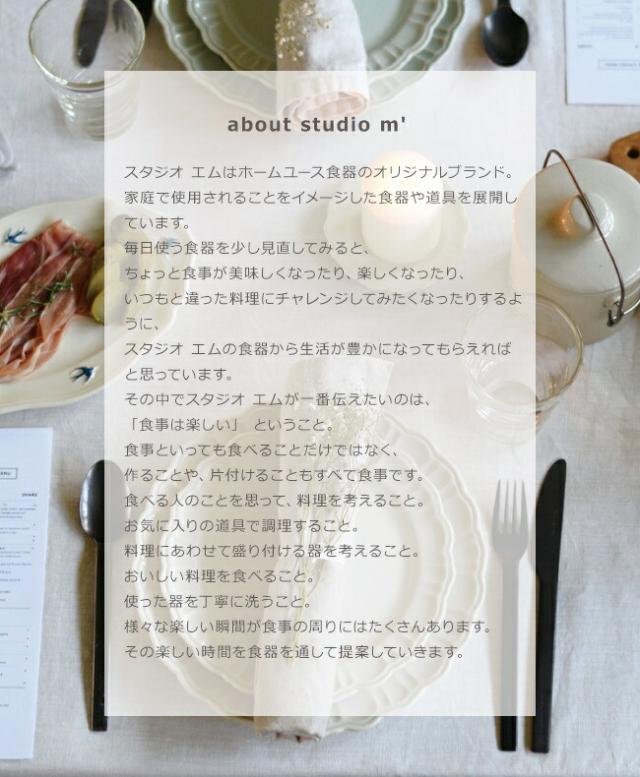 about studio m'
スタジオ エムはホームユース食器のオリジナルブランド。
家庭で使用されることをイメージした食器や道具を展開し
ています。
毎日使う食器を少し見直してみると、
ちょっと食事が美味しくなったり、楽しくなったり、
いつもと違った料理にチャレンジしてみたくなったりするよ
うに、
スタジオ エムの食器から生活が豊かになってもらえれば
と思っています。
その中でスタジオ エムが一番伝えたいのは、
「食事は楽しい」 ということ。
食事といっても食べることだけではなく、
作ることや、片付けることもすべて食事です。
食べる人のことを思って、料理を考えること。
お気に入りの道具で調理すること。
料理にあわせて盛り付ける器を考えること。
おいしい料理を食べること。
使った器を丁寧に洗うこと。
様々な楽しい瞬間が食事の周りにはたくさんあります。
その楽しい時間を食器を通して提案していきます。